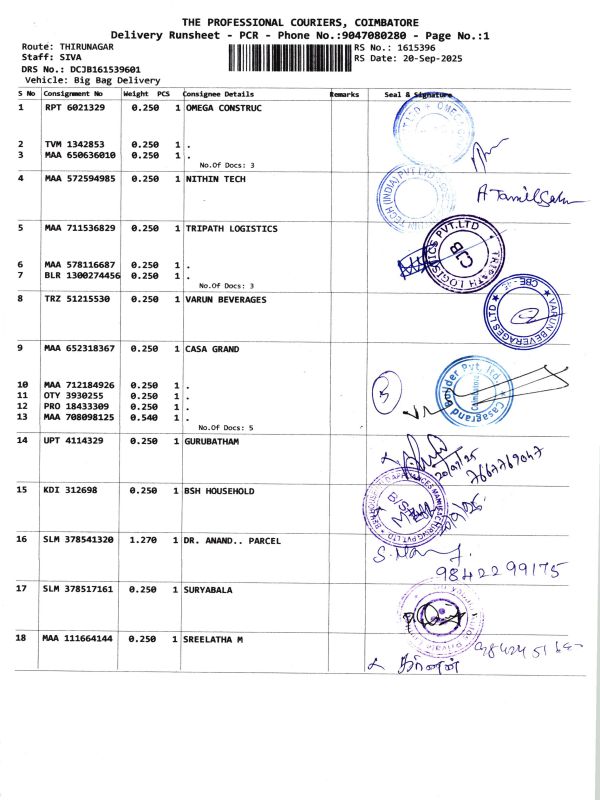 THE PROFESSIONAL COURIERS, COIMBATORE
Delivery Runsheet - PCR - Phone No.:9047080280 - Page No.:1
Route: THIRUNAGAR RS No.: 1615396
Staff: SIVA RS Date: 20-Sep-2025
DRS No.: DCJB161539601
Vehicle: Big Bag Delivery
S No Consignment No Weight PCS Consignee Details Remarks Seal & Signature
1 RPT 6021329 0.250 1 OMEGA CONSTRUC
2 TVM 1342853 0.250 1 .
3 MAA 650636010 0.250 1 .
No.Of Docs: 3
4 MAA 572594985 0.250 1 NITHIN TECH
(INDIA) PVT LTD
A Tamil Selvan
5 MAA 711536829 0.250 1 TRIPATH LOGISTICS
TRIPATH LOGISTICS PVT.LTD
CJB
6 MAA 578116687 0.250 1 .
7 BLR 1300274456 0.250 1 .
No.Of Docs: 3
8 TRZ 51215530 0.250 1 VARUN BEVERAGES
VARUN BEVERAGES LTD
CBE
9 MAA 652318367 0.250 1 CASA GRAND
Casagrand Builder Pvt. Ltd
Coimbatore
10 MAA 712184926 0.250 1 .
11 OTY 3930255 0.250 1 .
12 PRO 18433309 0.250 1 .
13 MAA 708098125 0.540 1 .
No.Of Docs: 5
5
14 UPT 4114329 0.250 1 GURUBATHAM
7667769047
15 KDI 312698 0.250 1 BSH HOUSEHOLD
16 SLM 378541320 1.270 1 DR. ANAND.. PARCEL
9842299175
17 SLM 378517161 0.250 1 SURYABALA
18 MAA 111664144 0.250 1 SREELATHA M